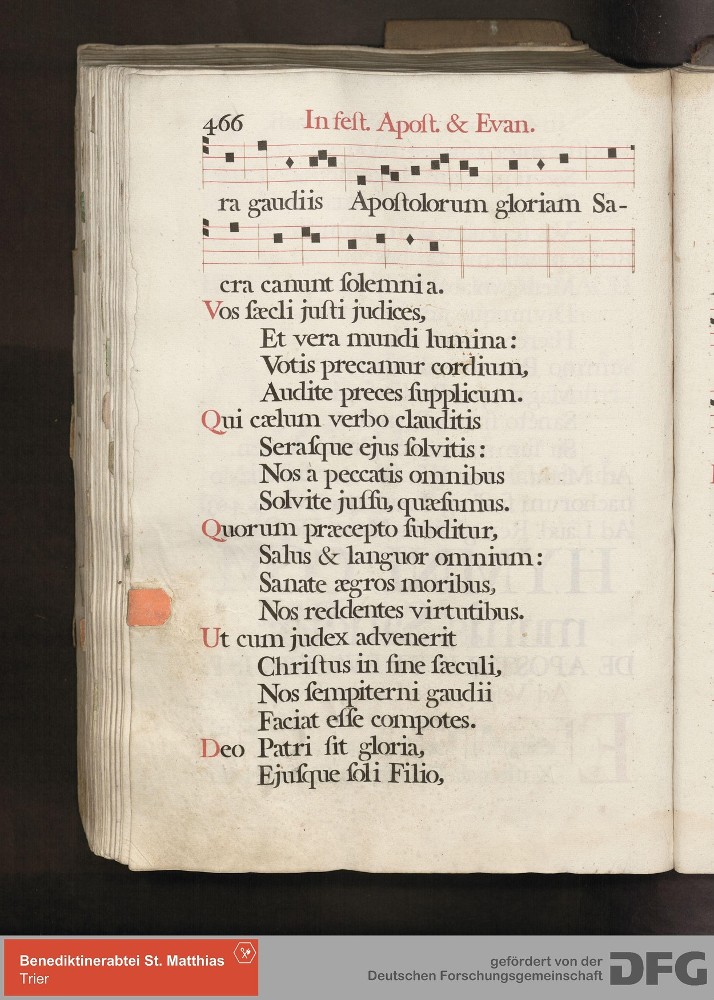 466 In feſt. Apoſt. & Evan.
ra gaudiis Apoſtolorum gloriam Sa-
cra canunt ſolemnia.
Vos ſæcli juſti judices,
Et vera mundi lumina:
Votis precamur cordium,
Audite preces ſupplicum.
Qui cælum verbo clauditis
Seraſque ejus ſolvitis:
Nos a peccatis omnibus
Solvite juſſu, quæſumus.
Quorum præcepto ſubditur,
Salus & languor omnium:
Sanate ægros moribus,
Nos reddentes virtutibus.
Ut cum judex advenerit
Chriſtus in fine ſæculi,
Nos ſempiterni gaudii
Faciat eſſe compotes.
Deo Patri ſit gloria,
Ejuſque ſoli Filio,
Benediktinerabtei St. Matthias
Trier
gefördert von der
Deutschen Forschungsgemeinschaft
DFG